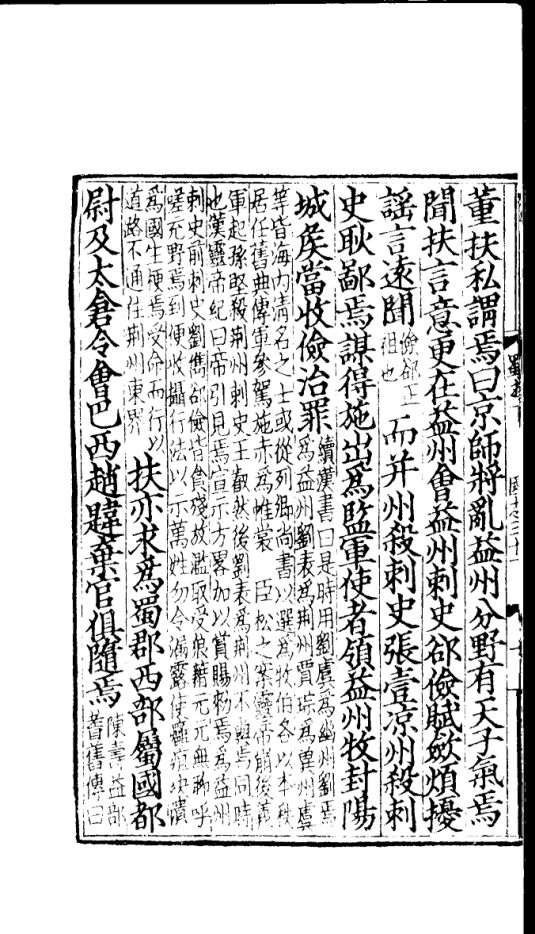 董扶私謂焉曰京師將亂益州分野有天子氣焉
聞扶言意更在益州會益州刺史郤儉賦斂煩擾
謠言遠聞
儉郤正
祖也
而并州殺刺史張壹凉州殺刺
史耿鄙焉謀得施出爲監軍使者領益州牧封陽
城矦當收儉治罪
續漢書曰是時用劉虞爲幽州劉焉
爲益州劉表爲荆州賈琮爲冀州虞
等皆海内清名之士或從列卿尚書以選爲牧伯各以本秩
居任舊典傳車參駕施赤爲帷裳 臣松之案靈帝崩後義
軍起孫堅殺荆州刺史王叡然後劉表爲荆州不與焉同時
也漢靈帝紀曰帝引見焉宣示方畧加以賞賜勑焉爲益州
刺史前刺史劉雋郤儉皆貪殘放濫取受狼籍元元無聊呼
嗟充野焉到便收攝行法以示萬姓勿令漏露使癰疽决潰
爲國生梗焉受命而行以
道路不通住荆州東界
扶亦求爲蜀郡西部屬國都
尉及太倉令會巴西趙韙棄官俱隨焉
陳壽益部
耆舊傳曰